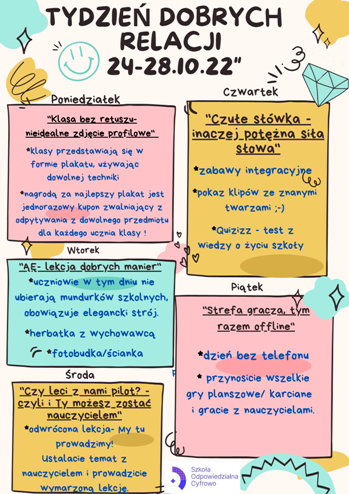 TYDZIEŃ DOBRYCH
RELACJI
24-28.10.22"
Poniedziałek
"Klasa bez retuszu-
nieidealne zdjęcie profilowe"
*klasy przedstawiają się w
formie plakatu, używając
dowolnej techniki
*nagrodą za najlepszy plakat jest
jednorazowy kupon zwalniający z
odpytywania z dowolnego przedmiotu
dla każdego ucznia klasy !
Wtorek
"AĘ- lekcja dobrych manier"
*uczniowie w tym dniu nie
ubierają mundurków szkolnych,
obowiązuje elegancki strój.
*herbatka z wychowawcą
*fotobudka/ścianka
Środa
"Czy leci z nami pilot? -
czyli i Ty możesz zostać
nauczycielem"
*odwrócona lekcja- My tu
prowadzimy!
Ustalacie temat z
nauczycielem i prowadzicie
wymarzoną lekcję.
Czwartek
"Czułe słówka -
inaczej potężna siła
słowa"
*zabawy integracyjne
*pokaz klipów ze znanymi
twarzami ;-)
*Quizizz - test z
wiedzy o życiu szkoły
Piątek
"Strefa gracza, tym
razem offline"
*dzień bez telefonu
* przynosicie wszelkie
gry planszowe/ karciane
i gracie z nauczycielami.
Szkoła
Odpowiedzialna
Cyfrowo